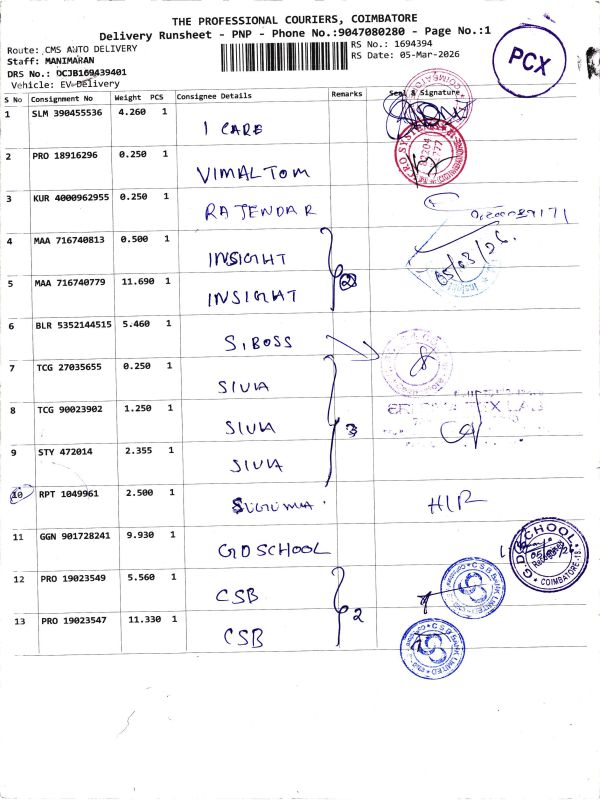 THE PROFESSIONAL COURIERS, COIMBATORE
Delivery Runsheet - PNP - Phone No.:9047080280 - Page No.:1
Route: CMS AUTO DELIVERY
RS No.: 1694394
Staff: MANIMARAN
RS Date: 05-Mar-2026
DRS No.: DCJB169439401
Vehicle: EV-Delivery
PCX
S No Consignment No Weight PCS Consignee Details Remarks Seal & Signature
1 SLM 390455536 4.260 1 I CARE
2 PRO 18916296 0.250 1 VIMALTOM
3 KUR 4000962955 0.250 1 RAJENDAR
4 MAA 716740813 0.500 1 INSIGHT
05/03/26.
5 MAA 716740779 11.690 1 INSIGHT
2
6 BLR 5352144515 5.460 1 S.BOSS
7 TCG 27035655 0.250 1 SIVIA
8 TCG 90023902 1.250 1 SIVIA
3
9 STY 472014 2.355 1 SIVIA
10 RPT 1049961 2.500 1
11 GGN 901728241 9.930 1 GD SCHOOL
G.D SCHOOL
COIMBATORE-18
12 PRO 19023549 5.560 1 CSB
CSB Bank Limited
2
13 PRO 19023547 11.330 1 CSB
CSB BANK LIMITED